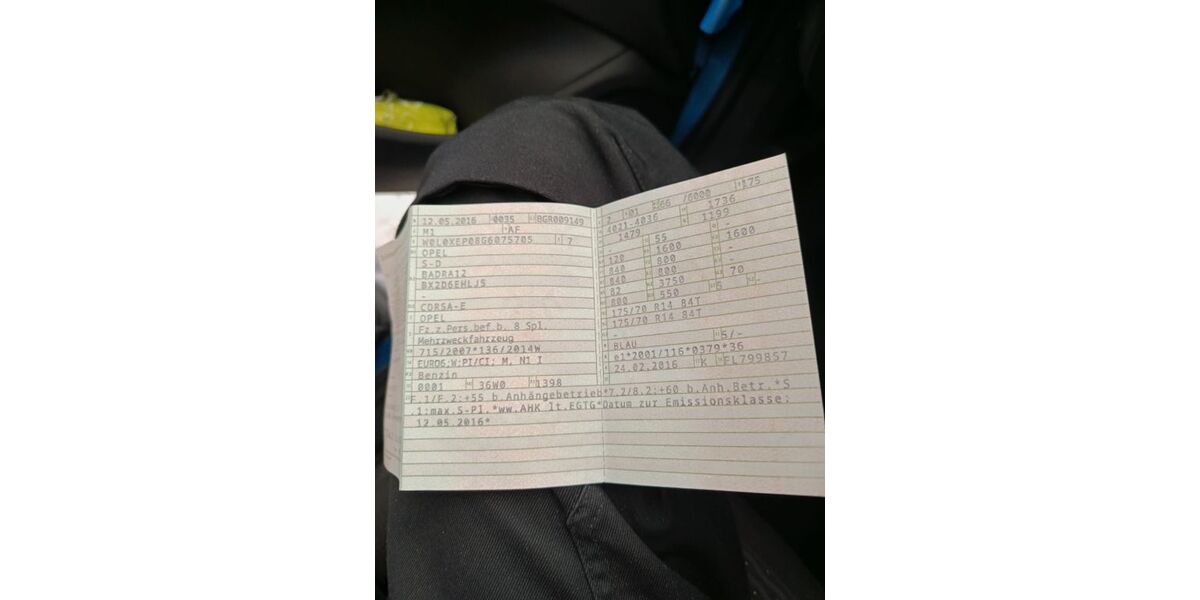 12.05.2016 0035 BGR009149
M1 AF
W0L0XEP08G6075705 7
OPEL
S-D
BADRA12
BX2D6EHLJ5
-
CORSA-E
OPEL
Fz.z.Pers.bef.b. 8 Spl.
Mehrzweckfahrzeug
715/2007*136/2014W
EURO6;W:PI/CI; M, N1 I
Benzin
0001 36W0 1398
2 01 66 /6000 175
4021-4036 1736
1479 1199
- 55
120 1600 1600
840 800 -
840 800 -
82 3750 70
800 550 5 -
175/70 R14 84T
175/70 R14 84T
-
BLAU 5/-
e1*2001/116*0379*36
24.02.2016 K FL799857
F.1/F.2:+55 b.Anhängebetrieb*7.2/8.2:+60 b.Anh.Betr.*S
.1:max.S-Pl.*ww.AHK lt.EGTG*Datum zur Emissionsklasse:
12.05.2016*